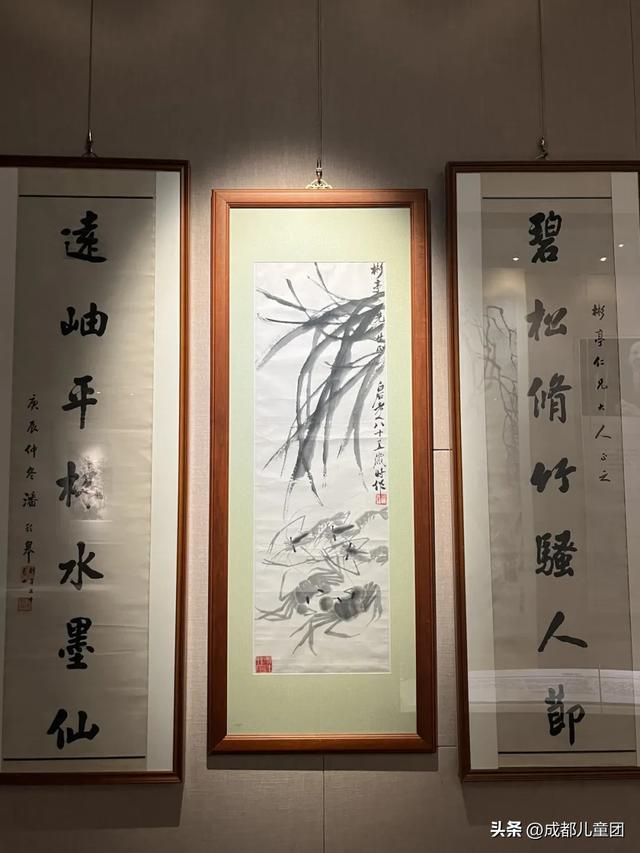 碧松脩竹騷人節
彬亭仁兄大人正之
彬亭先生
白石老人八十五歲時作
遠岫平林水墨仙
庚辰仲冬潘齡皋
头条 @成都儿童团